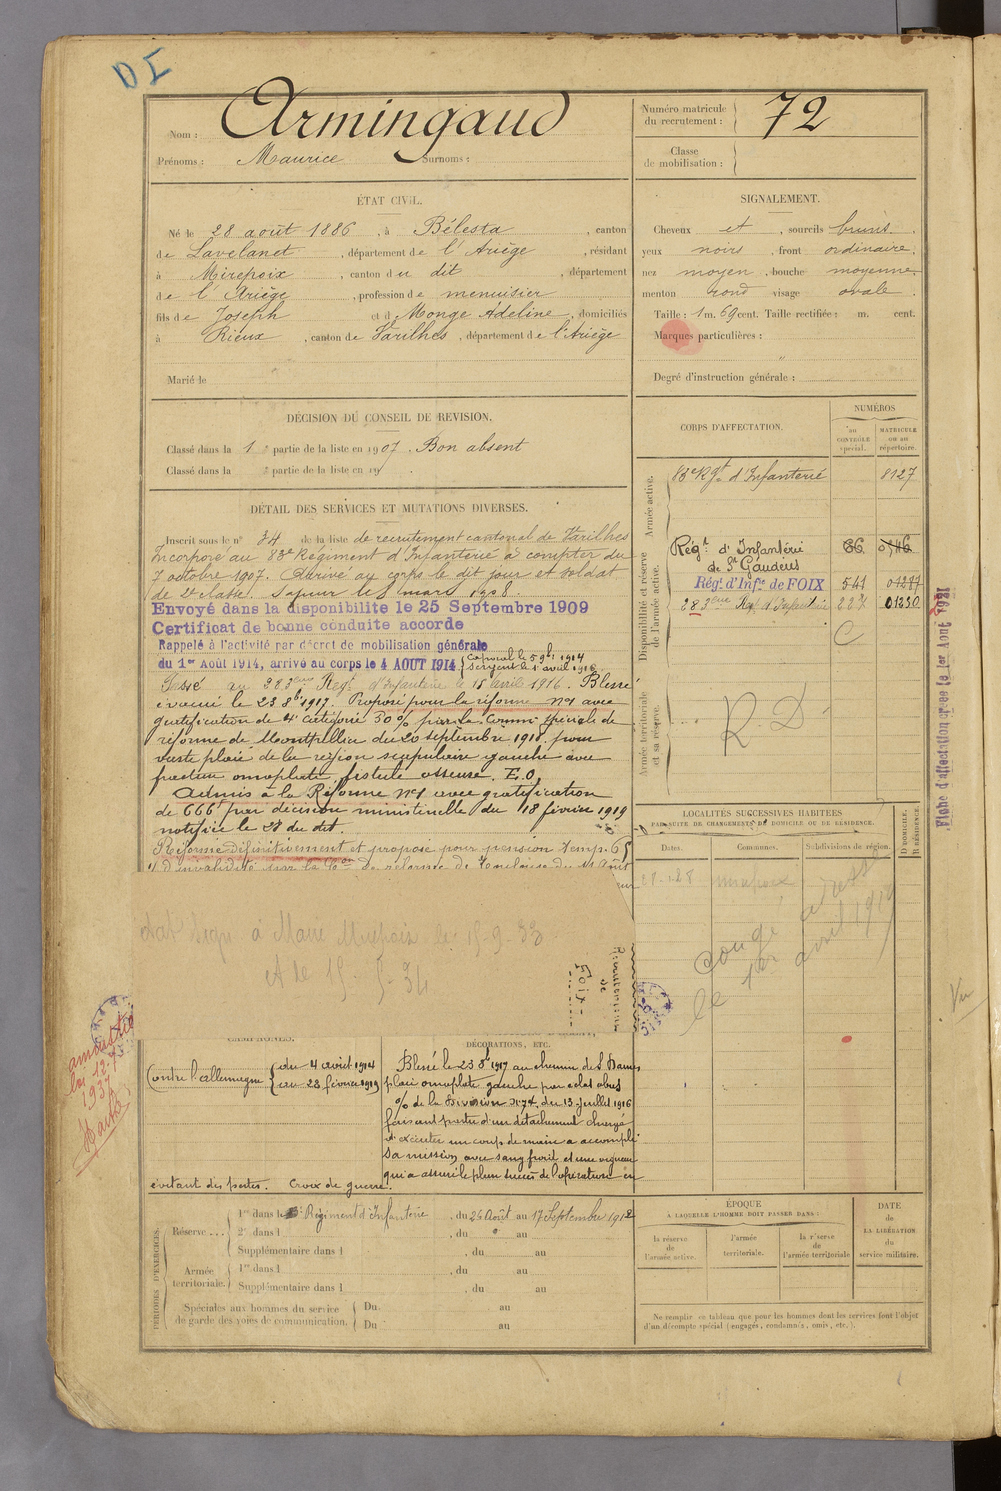 DI
Nom : Armingaud
Prénoms : Maurice Surnoms :
Numéro matricule du recrutement : 72
Classe de mobilisation :
ÉTAT CIVIL.
Né le 28 août 1886, à Bélesta, canton
de Lavelanet, département de l'Ariège, résidant
à Mirepoix, canton du dit, département
de l'Ariège, profession de menuisier
fils de Joseph et d Monge Adeline, domiciliés
à Rieux, canton de Varilhes, département de l'Ariège
Marié le
SIGNALEMENT.
Cheveux et, sourcils bruns.
yeux noirs, front ordinaire,
nez moyen, bouche moyenne,
menton rond visage ovale.
Taille : 1 m. 69 cent. Taille rectifiée : m. cent.
Marques particulières :
Degré d'instruction générale :
DÉCISION DU CONSEIL DE REVISION.
Classé dans la 1e partie de la liste en 1907. Bon absent
Classé dans la e partie de la liste en 19 .
CORPS D'AFFECTATION.
NUMÉROS
au CONTRÔLE spécial.
MATRICULE ou au répertoire.
Armée active.
83e Rgt d'Infanterie 8127
Disponibilité et réserve de l'armée active.
Régt d'Infanterie 66
de St Gaudens
Régt d'Infie de FOIX 541
283eme Regt d'Infanterie 227 01230
Armée territoriale et sa réserve.
R. D.
DÉTAIL DES SERVICES ET MUTATIONS DIVERSES.
Inscrit sous le n° 34 de la liste de recrutement cantonal de Varilhes
Incorporé au 83e Régiment d'Infanterie à compter du
7 octobre 1907. Arrivé au corps le dit jour et soldat
de 2e classe. Sapeur le 8 mars 1908.
Envoyé dans la disponibilité le 25 Septembre 1909
Certificat de bonne conduite accordé
Rappelé à l'activité par décret de mobilisation générale
du 1er Août 1914, arrivé au corps le 4 AOUT 1914
Caporal le 5 9bre 1914
Sergent le 1er avril 1916
Passé au 283eme Regt d'Infanterie le 15 Avril 1916. Blessé
évacué le 23 8bre 1917. Proposé pour la réforme n°1 avec
gratification de 4e catégorie 30% par la Common spéciale de
réforme de Montpellier du 20 septembre 1918 pour
vaste plaie de la région scapulaire gauche avec
fracture omoplate, fistule osseuse. E.O.
Admis à la Réforme n°1 avec gratification
de 666f par décision ministérielle du 18 février 1919
notifiée le 28 du dit.
Réformé définitivement et proposé pour pension temp. 65
% d'invalidité par la Con de réforme de Toulouse du
LOCALITÉS SUCCESSIVES HABITÉES
PAR SUITE DE CHANGEMENTS DE DOMICILE OU DE RÉSIDENCE.
Dates. Communes. Subdivisions de région.
D DOMICILE. R RÉSIDENCE.
Mirepoix
Congé adresse
le 1er avril 1919
à Mairie Mirepoix le 15-9-33
Recrutement
de
Foix
CAMPAGNES.
Contre l'allemagne du 4 août 1914
au 28 février 1919
DÉCORATIONS, ETC.
Blessé le 23 8bre 1917 au chemin des Dames
plaie omoplate gauche par eclat obus
% de la Division n° 74 du 13 Juillet 1916
faisant partie d'un détachement chargé
d'exécuter un coup de main a accompli
sa mission avec sang froid et une vigueur
qui a assuré le plein succès de l'opération en
évitant des pertes. Croix de guerre.
PÉRIODES D'EXERCICES.
Réserve ... 1re dans le Régiment d'Infanterie, du 26 Août au 17 Septembre 1912
2e dans l , du au
Supplémentaire dans l , du au
Armée territoriale. 1re dans l , du au
Supplémentaire dans l , du au
Spéciales aux hommes du service de garde des voies de communication. Du au
Du au
ÉPOQUE
À LAQUELLE L'HOMME DOIT PASSER DANS :
la réserve de l'armée active.
l'armée territoriale.
la réserve de l'armée territoriale
DATE
DE LA LIBÉRATION
du
service militaire.
Ne remplir ce tableau que pour les hommes dont les services font l'objet
d'un décompte spécial (engagés, condamnés, omis, etc.).
1937
Vu